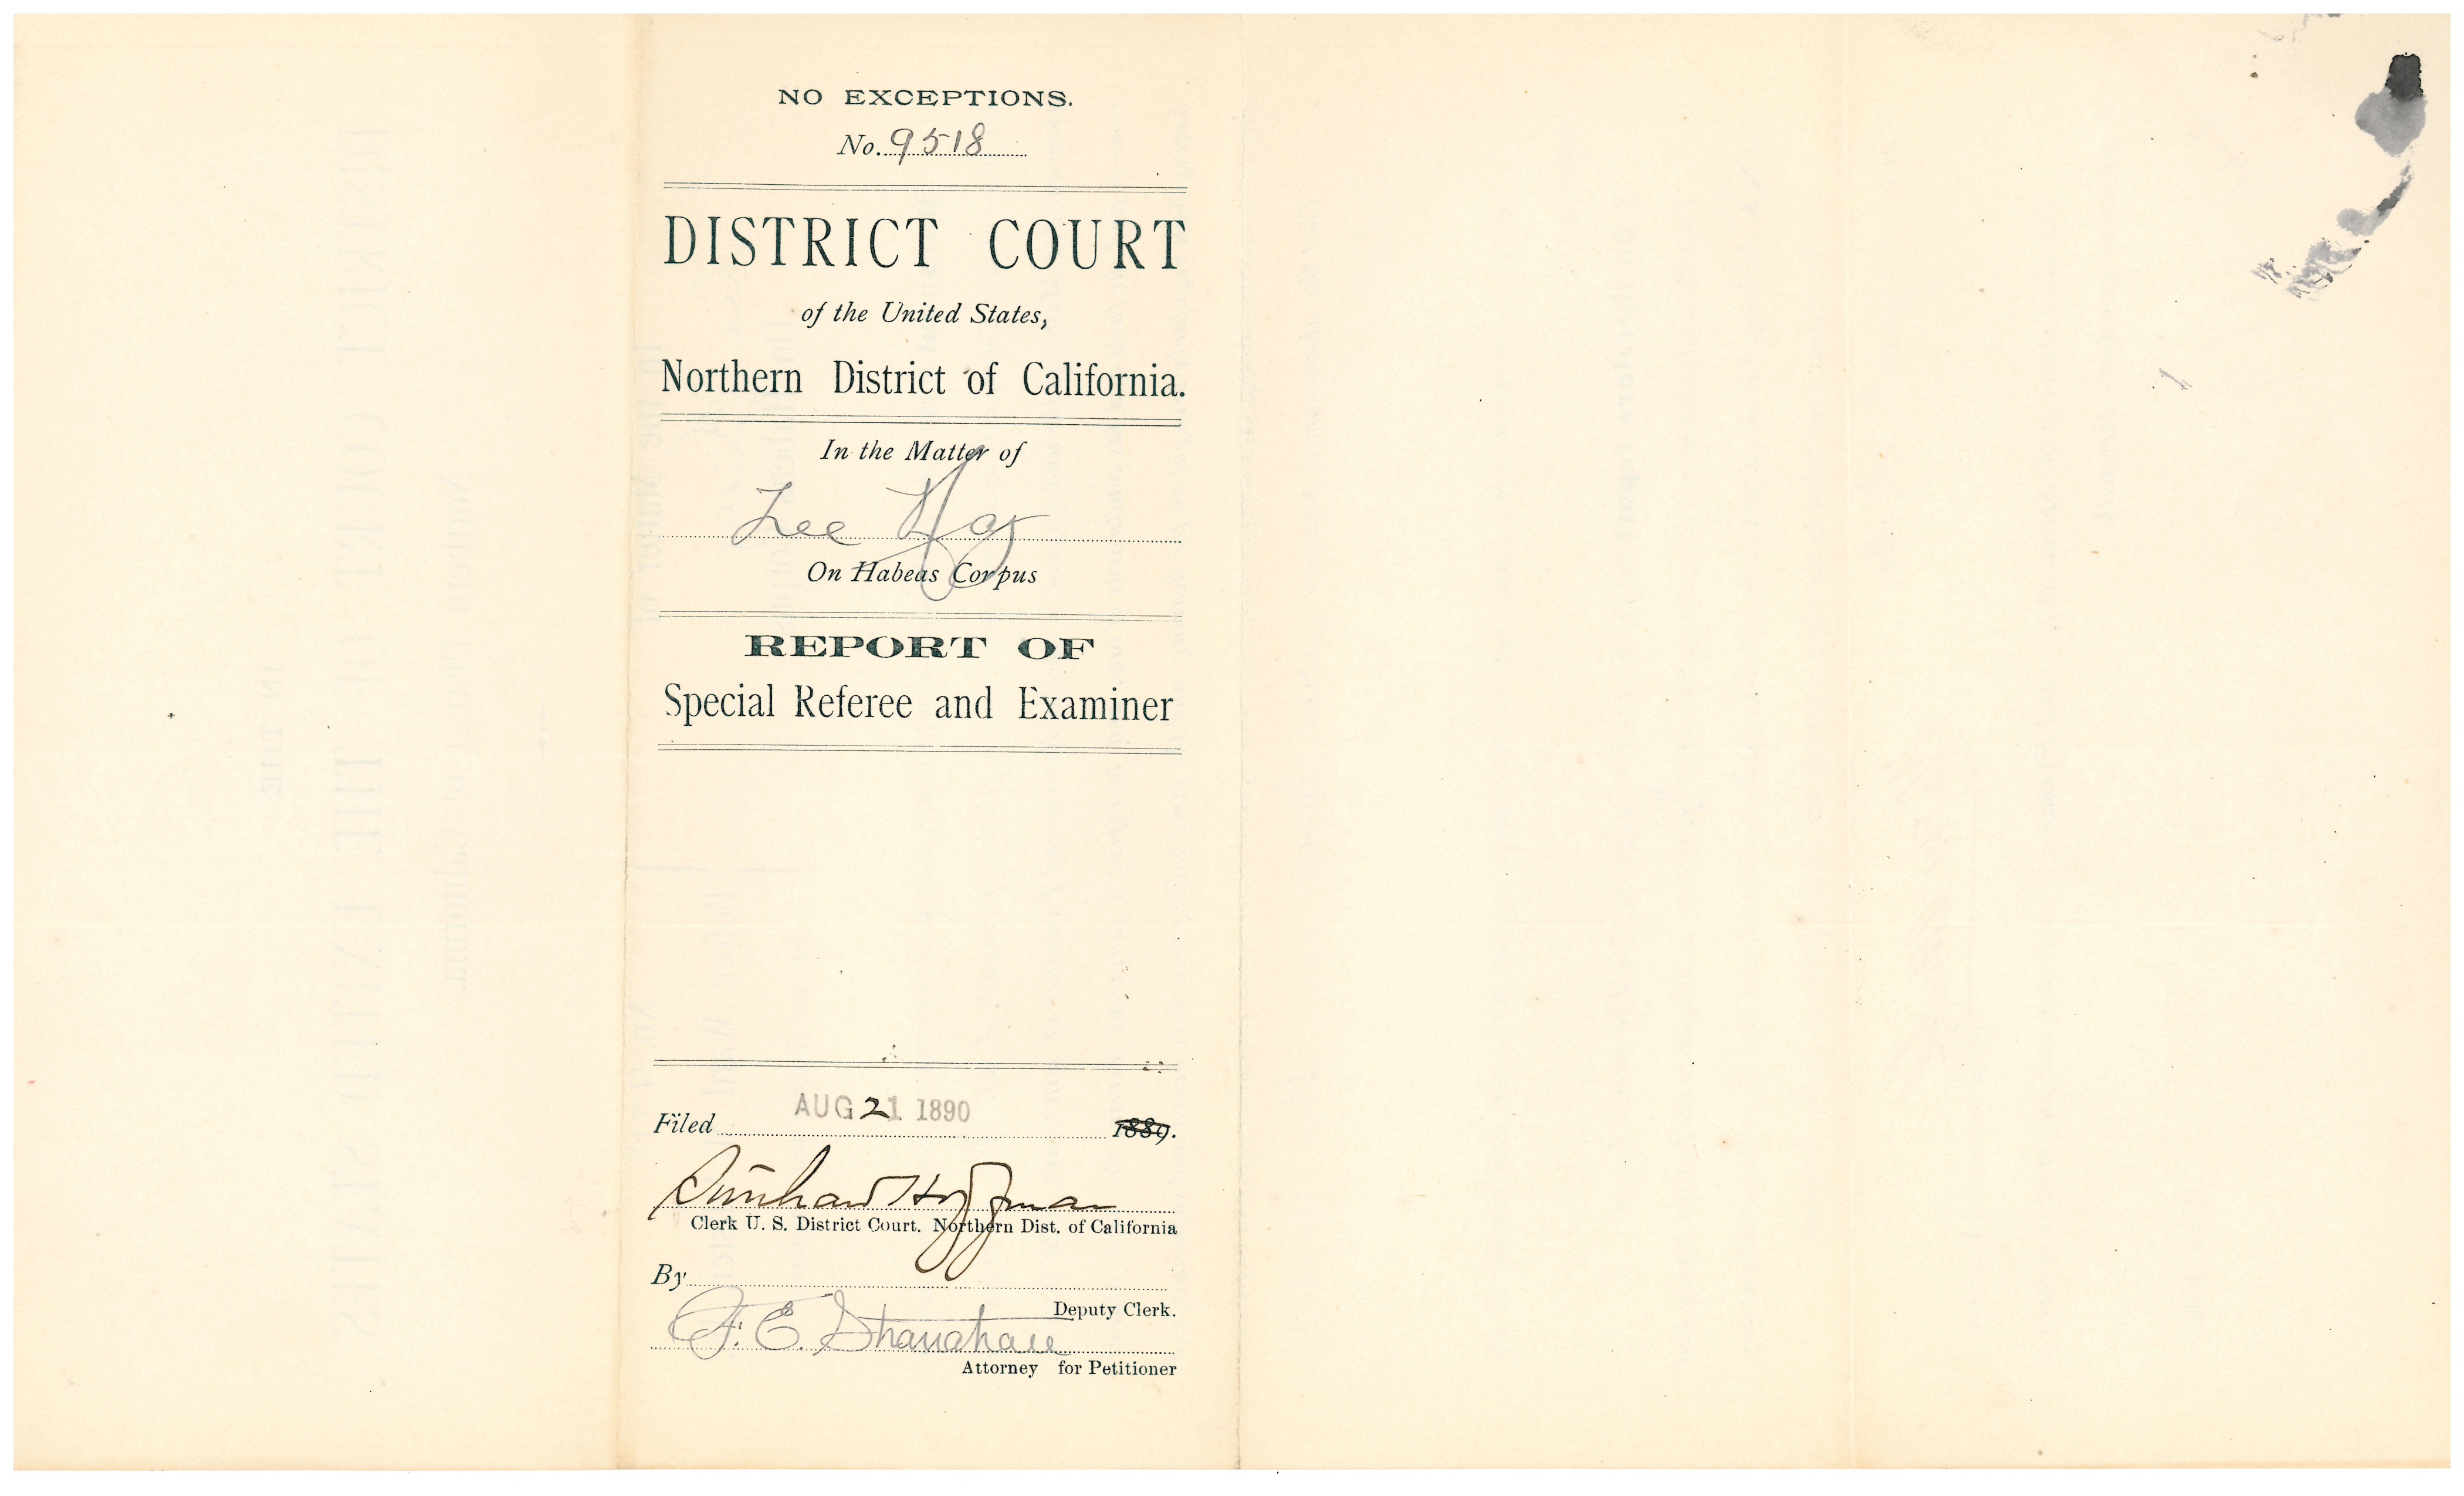 NO EXCEPTIONS.
No. 9518
DISTRICT COURT
of the United States,
Northern District of California.
In the Matter of
Lee
On Habeas Corpus
REPORT OF
Special Referee and Examiner
AUG 21 1890
Filed 1889.
Hoffman
Clerk U. S. District Court. Northern Dist. of California
By
Deputy Clerk.
F. E. Shanahan
Attorney for Petitioner